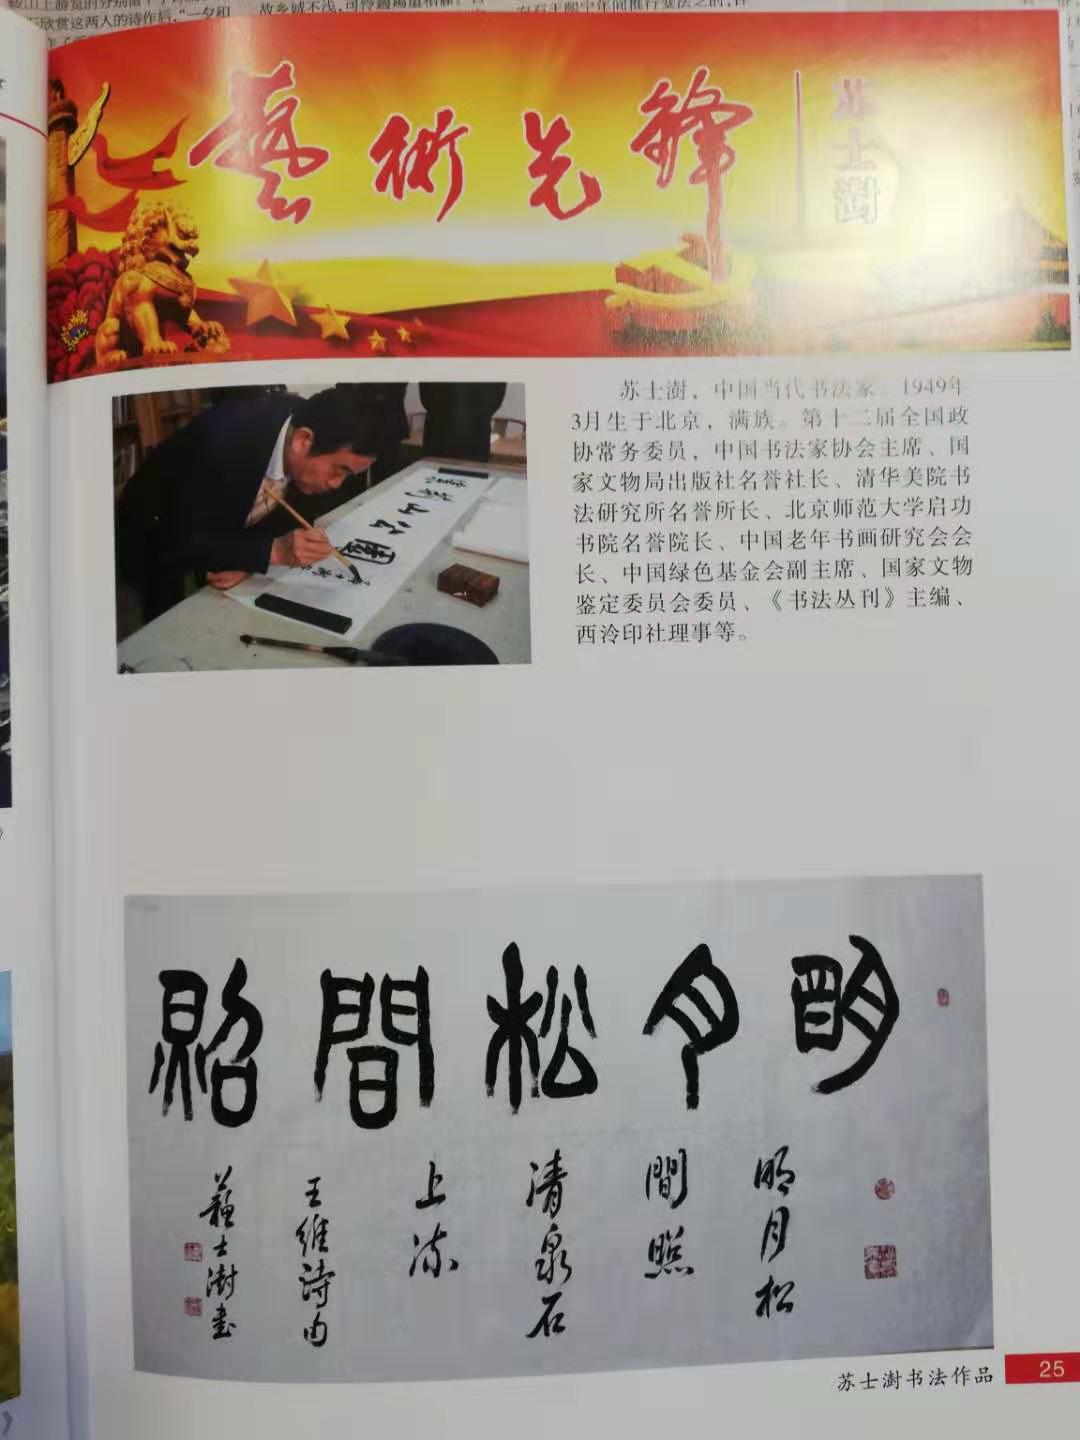 石欣赏这两人的诗作后，“一夕和
藝術先鋒
苏士澍
苏士澍，中国当代书法家。1949年
3月生于北京，满族。第十二届全国政
协常务委员，中国书法家协会主席、国
家文物局出版社名誉社长、清华美院书
法研究所名誉所长、北京师范大学启功
书院名誉院长、中国老年书画研究会会
长、中国绿色基金会副主席、国家文物
鉴定委员会委员、《书法丛刊》主编、
西泠印社理事等。
明月松間照
明月松
間照
清泉石
上流
王維詩句
蘇士澍書
苏士澍书法作品
25